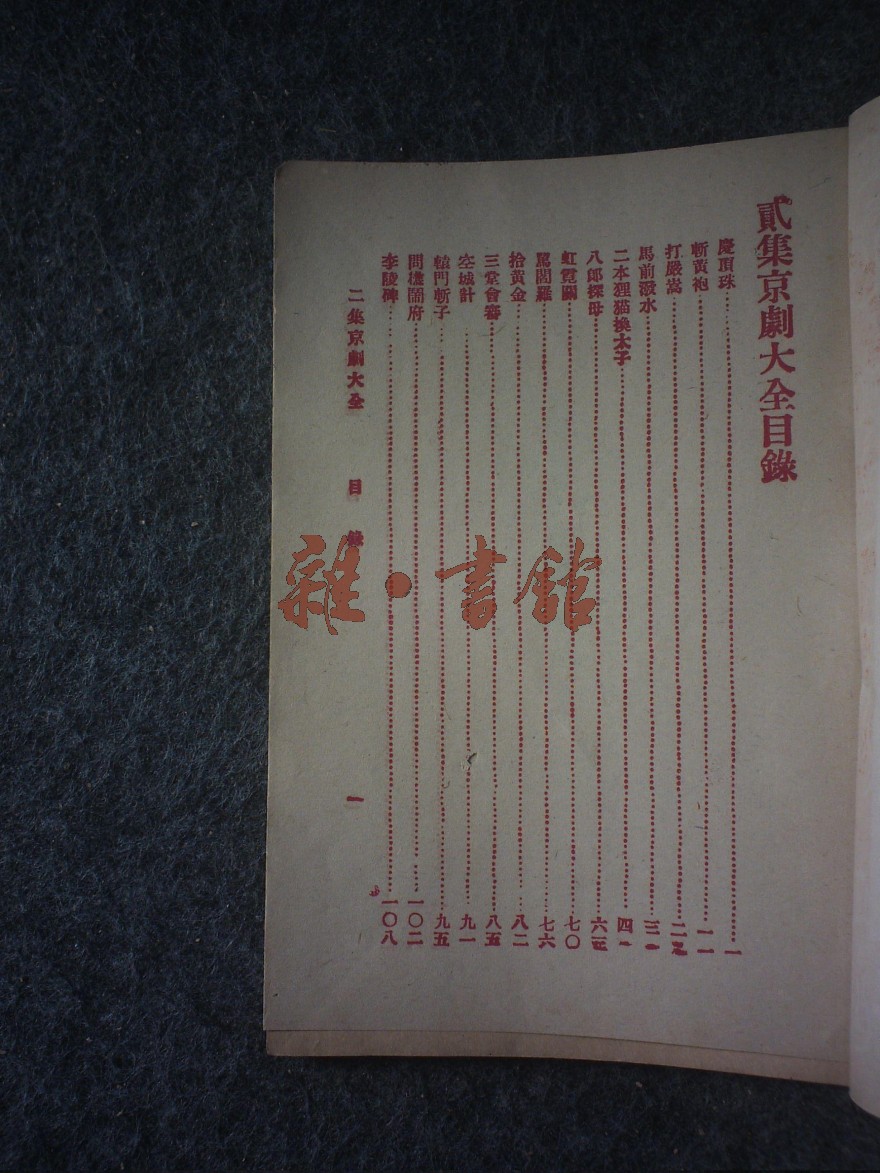 貳集京劇大全目錄
慶頂珠 一
斬黃袍 一一
打嚴嵩 二三
馬前潑水
二本狸猫換太子
八郎探母 六五
虹霓關 七〇
罵閻羅 七六
拾黃金 八二
三堂會審 八五
空城計 九一
轅門斬子 九五
問樵鬧府 一〇二
李陵碑 一〇八
二集京劇大全 目錄 一
雜·書館